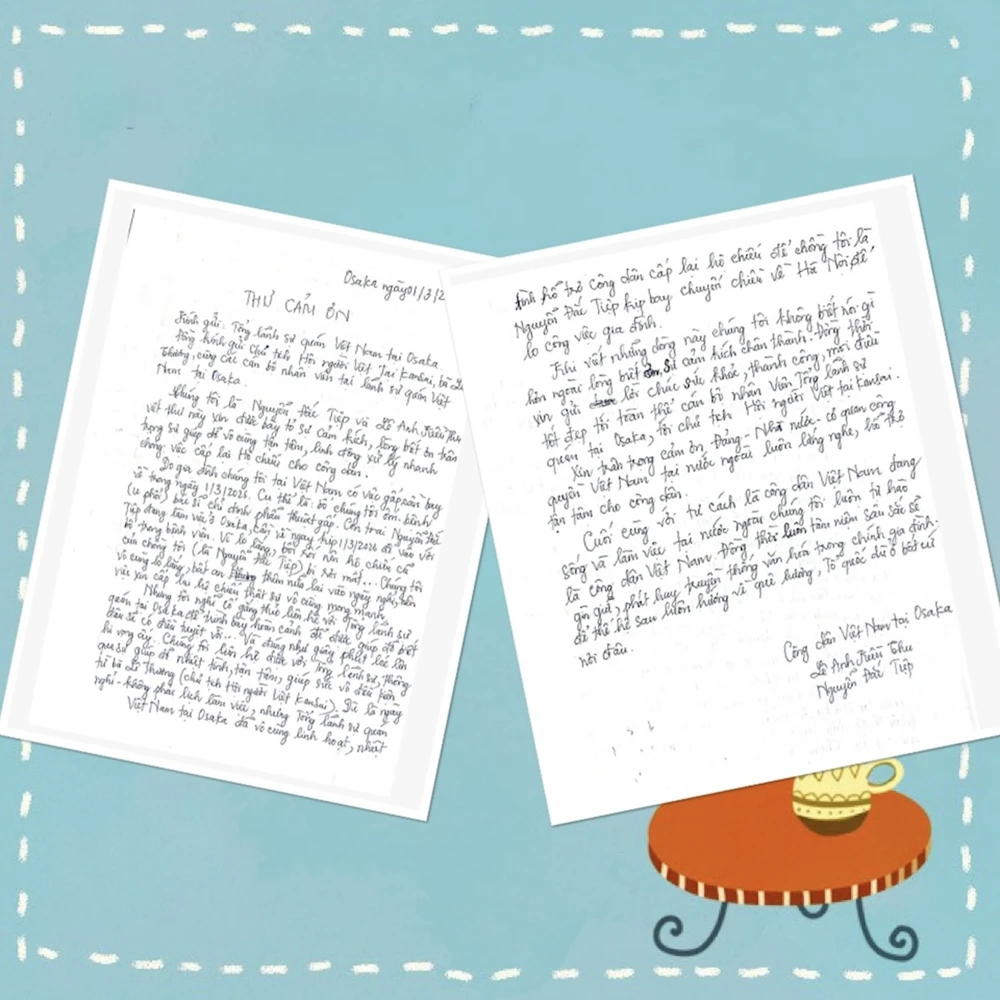 Osaka ngày 01/3/2
THƯ CẢM ƠN
Kính gửi: Tổng lãnh sự quán Việt Nam tại Osaka.
Đồng kính gửi Chủ tịch Hội người Việt Tại Kansai, bà Lê
Thương, cùng các cán bộ nhân viên tại lãnh sự quán Việt
Nam tại Osaka.
Chúng tôi là Nguyễn Đắc Tiệp và Lê Anh Kiều Thu
viết thư này xin được bày tỏ sự cảm kích, lòng biết ơn trân
trọng sự giúp đỡ vô cùng tận tâm, linh động xử lý nhanh
chóng việc cấp lại Hộ chiếu cho công dân.
Do gia đình chúng tôi tại Việt Nam có việc gấp cần bay
về trong ngày 1/3/2026. Cụ thể là: bố chúng tôi ốm bệnh
(u phổi) bác sĩ chỉ định phẫu thuật gấp. Con trai Nguyễn Đắc
Tiệp đang làm việc ở Osaka cần về ngay kịp 1/3/2026 để vào với
bố trong bệnh viện. Vì lo lắng, bối rối nên hộ chiếu cũ
của chồng tôi (là Nguyễn Đắc Tiệp) bị rơi mất... Chúng tôi
vô cùng lo lắng, bất an thêm nữa lại vào ngày nghỉ, nên
việc xin cấp lại hộ chiếu thật sự vô cùng mong manh.
Nhưng tôi nghĩ cố gắng thử liên hệ với Tổng lãnh sự
quán tại Osaka để trình bày hoàn cảnh để được giúp đỡ biết
đâu sẽ có điều tuyệt vời... Và đúng như giây phút lóe lên
hi vọng ấy. Chúng tôi liên hệ được với Tổng lãnh sự, thông
qua sự giúp đỡ nhiệt tình, tận tâm, giúp sức vô điều kiện
từ bà Lê Thương (chủ tịch Hội người Việt Kansai). Dù là ngày
nghỉ - không phải lịch làm việc, nhưng Tổng lãnh sự quán
Việt Nam tại Osaka đã vô cùng linh hoạt, nhiệt
tình hỗ trợ công dân cấp lại hộ chiếu để chồng tôi là
Nguyễn Đắc Tiệp kịp bay chuyến chiều về Hà Nội để
lo công việc gia đình.
Khi viết những dòng này chúng tôi không biết nói gì
hơn ngoài lòng biết ơn, sự cảm kích chân thành. Đồng thời
xin gửi lời chúc sức khỏe, thành công, mọi điều
tốt đẹp tới toàn thể cán bộ nhân Viên Tổng lãnh sự
quán tại Osaka, tới chủ tịch Hội người Việt tại Kansai.
Xin trân trọng cảm ơn, Đảng - Nhà nước - cơ quan công
quyền Việt Nam tại nước ngoài luôn lắng nghe, hỗ trợ
tận tâm cho công dân.
Cuối cùng, với tư cách là công dân Việt Nam đang
sống và làm việc tại nước ngoài chúng tôi luôn tự hào
là công dân Việt Nam. Đồng thời luôn tâm niệm sâu sắc sẽ
gìn giữ, phát huy truyền thống văn hóa trong chính gia đình.
để thế hệ sau luôn hướng về quê hương, Tổ quốc dù ở bất cứ
nơi đâu.
Công dân Việt Nam tại Osaka
Lê Anh Kiều Thu
Nguyễn Đắc Tiệp